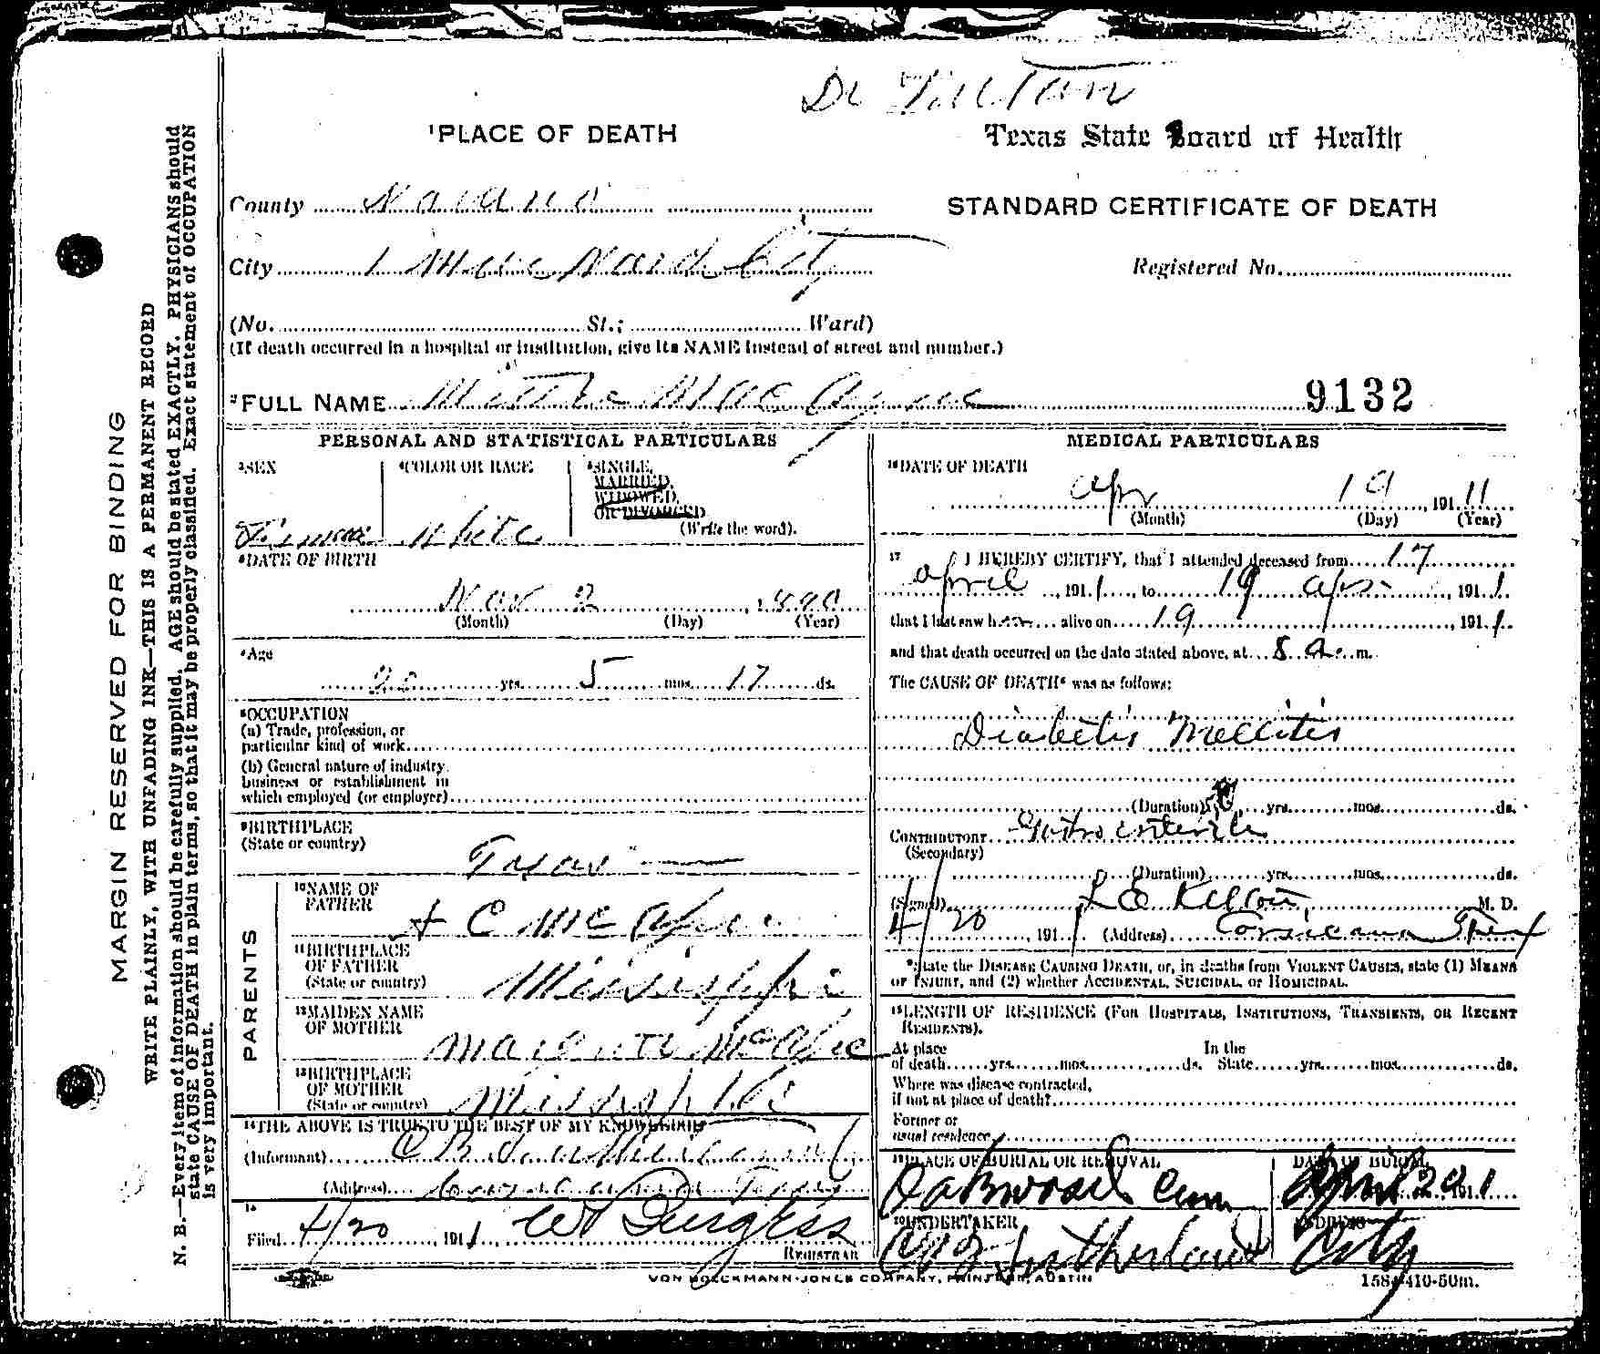 ¹PLACE OF DEATH
Texas State Board of Health
County
STANDARD CERTIFICATE OF DEATH
City
Registered No.
(No. St.; Ward)
(If death occurred in a hospital or institution, give its NAME instead of street and number.)
²FULL NAME 9132
PERSONAL AND STATISTICAL PARTICULARS
³SEX
⁴COLOR OR RACE White
⁵SINGLE,
MARRIED,
WIDOWED,
OR DIVORCED
(Write the word).
⁶DATE OF BIRTH
Nov 2, 1890
(Month) (Day) (Year)
⁷Age
20 yrs. 5 mos. 17 ds.
⁸OCCUPATION
(a) Trade, profession, or
particular kind of work
(b) General nature of industry,
business or establishment in
which employed (or employer)
⁹BIRTHPLACE
(State or country)
Texas
PARENTS
¹⁰NAME OF
FATHER
C McAfee
¹¹BIRTHPLACE
OF FATHER
(State or country)
Mississippi
¹²MAIDEN NAME
OF MOTHER
McAfee
¹³BIRTHPLACE
OF MOTHER
(State or country)
Mississippi
¹⁴THE ABOVE IS TRUE TO THE BEST OF MY KNOWLEDGE
(Informant)
(Address)
Filed 4/20, 1911 Burgess
REGISTRAR
MEDICAL PARTICULARS
¹⁶DATE OF DEATH
Apr 19 1911
(Month) (Day) (Year)
¹⁷ I HEREBY CERTIFY, that I attended deceased from 17
April, 1911, to 19 Apr, 1911
that I last saw her alive on 19, 1911
and that death occurred on the date stated above, at 8 a.m.
The CAUSE OF DEATH* was as follows:
Diabetis Mellitis
(Duration) yrs. mos. ds.
CONTRIBUTORY
(Secondary)
(Duration) yrs. mos. ds.
(Signed) L E Kelton, M. D.
4/20, 1911 (Address) Corsicana Tex
*State the DISEASE CAUSING DEATH, or, in deaths from VIOLENT CAUSES, state (1) MEANS
OF INJURY, and (2) whether ACCIDENTAL, SUICIDAL, or HOMICIDAL.
¹⁸LENGTH OF RESIDENCE (FOR HOSPITALS, INSTITUTIONS, TRANSIENTS, OR RECENT
RESIDENTS).
At place In the
of death yrs. mos. ds. State yrs. mos. ds.
Where was disease contracted,
if not at place of death?
Former or
usual residence
¹⁹PLACE OF BURIAL OR REMOVAL
Oakwood Cem
DATE OF BURIAL
April 20 1911
²⁰UNDERTAKER
Sutherland
ADDRESS
City
VON BOECKMANN-JONES COMPANY, PRINTERS, AUSTIN
MARGIN RESERVED FOR BINDING
WRITE PLAINLY, WITH UNFADING INK—THIS IS A PERMANENT RECORD
N. B.—Every item of information should be carefully supplied. AGE should be stated EXACTLY. PHYSICIANS should
state CAUSE OF DEATH in plain terms, so that it may be properly classified. Exact statement of OCCUPATION
is very important.